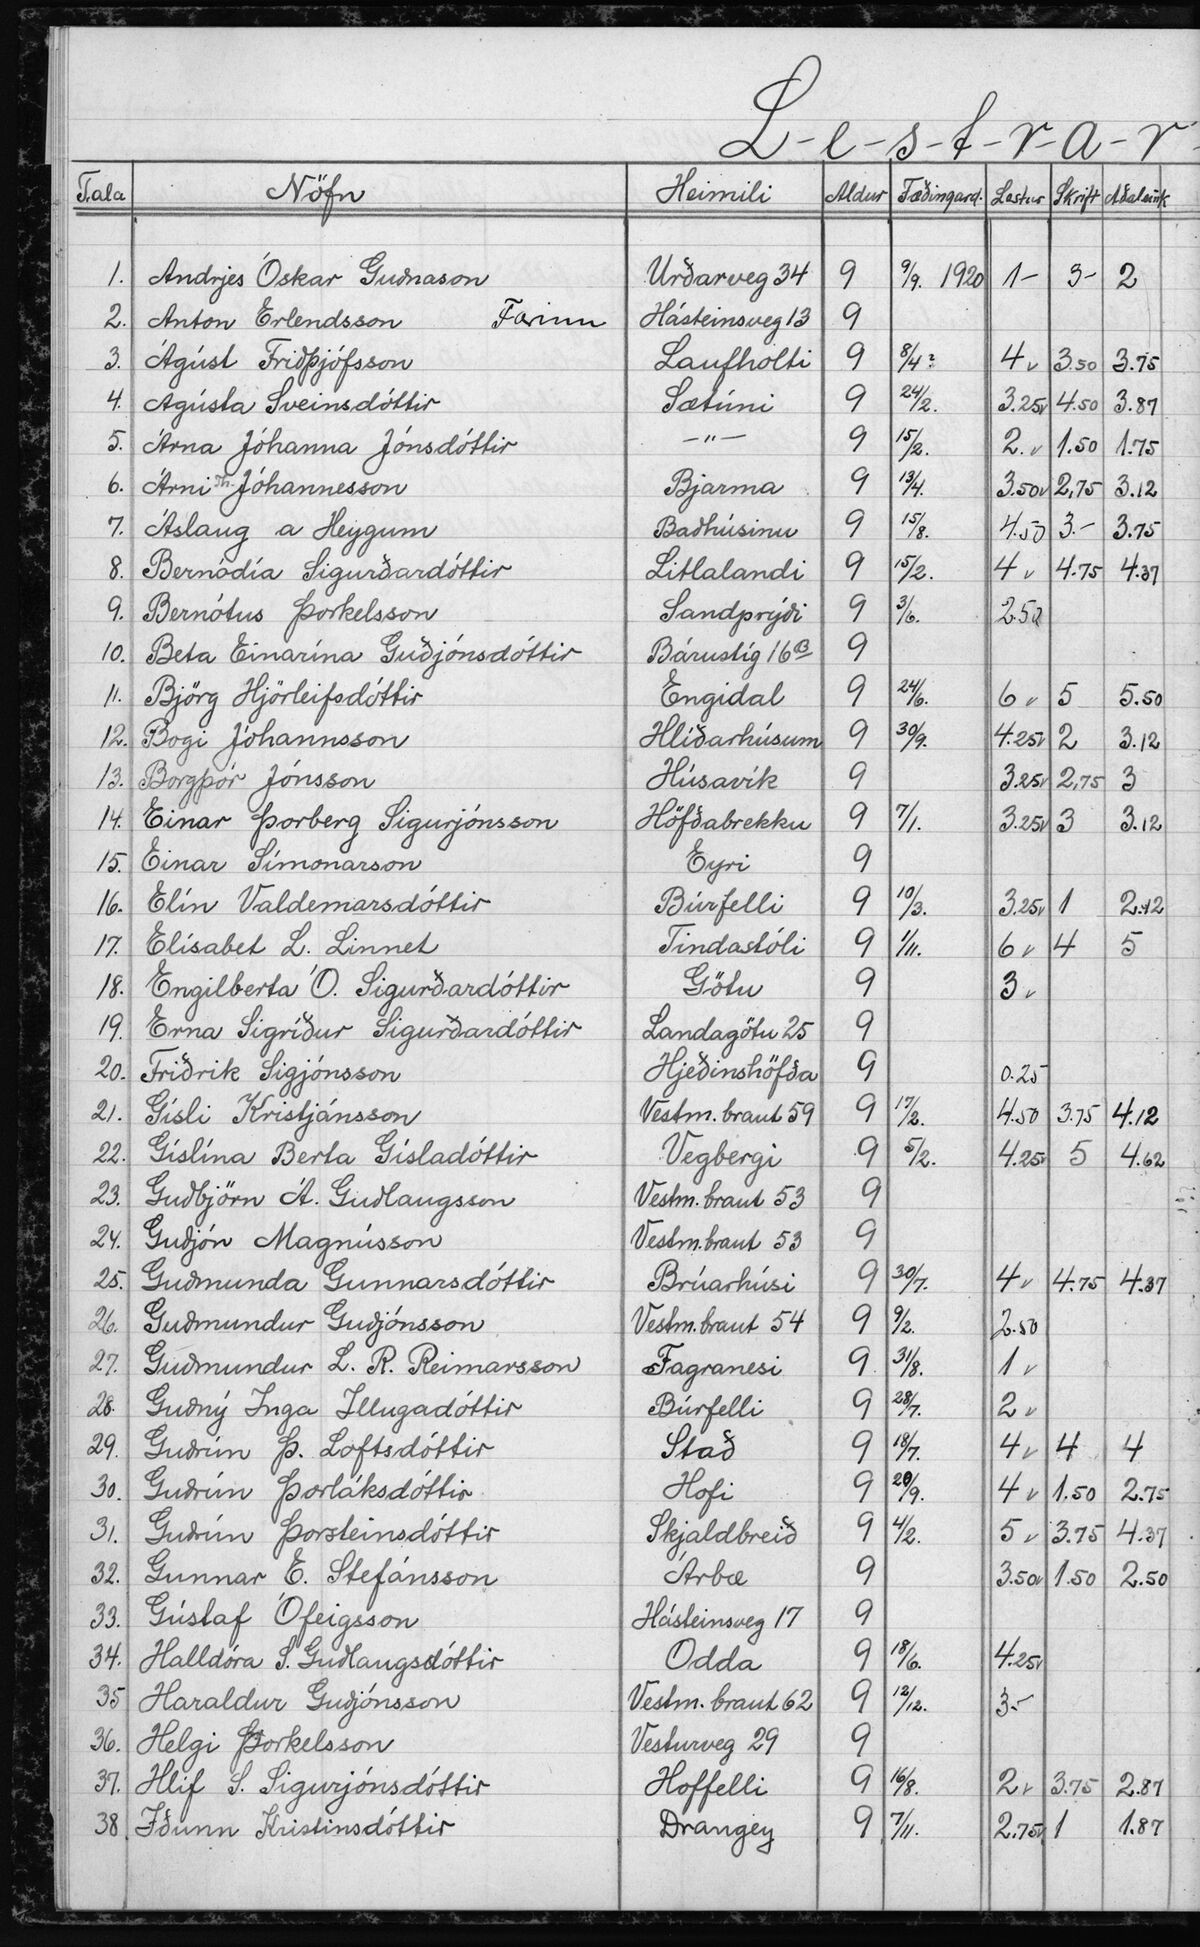 L-e-s-t-r-a-r-
Tala Nöfn Heimili Aldur Fæðingard. Lestur Skrift Aðaleink
1. Andrjes Óskar Guðnason Urðarveg 34 9 9/9. 1920 1- 3- 2
2. Anton Erlendsson Farinn Hásteinsveg 13 9
3. Ágúst Friðþjófsson Laufholti 9 8/4? 4 v 3.50 3.75
4. Agústa Sveinsdóttir Sætúni 9 24/2. 3.25v 4.50 3.87
5. Árna Jóhanna Jónsdóttir —"— 9 15/2. 2. v 1.50 1.75
6. Árni Th. Jóhannesson Bjarma 9 13/4. 3.50v 2,75 3.12
7. Áslaug a Heygum Baðhúsinu 9 15/8. 4.50 3.- 3.75
8. Bernódía Sigurðardóttir Litlalandi 9 15/2. 4 v 4.75 4.37
9. Bernótus Þorkelsson Sandprýði 9 3/6. 2.50
10. Beta Einarína Guðjónsdóttir Bárustíg 16B 9
11. Björg Hjörleifsdóttir Engidal 9 24/6. 6 v 5 5.50
12. Bogi Jóhannsson Hlíðarhúsum 9 30/9. 4.25v 2 3.12
13. Borgþór Jónsson Húsavík 9 3.25v 2,75 3
14. Einar Þorberg Sigurjónsson Höfðabrekku 9 7/1. 3.25v 3 3.12
15. Einar Símonarson Eyri 9
16. Elín Valdemarsdóttir Búrfelli 9 10/3. 3.25v 1 2.12
17. Elísabet L. Linnet Tindastóli 9 1/11. 6 v 4 5
18. Engilberta Ó. Sigurðardóttir Götu 9 3 v
19. Erna Sigríður Sigurðardóttir Landagötu 25 9
20. Friðrik Sigjónsson Hjeðinshöfða 9 0.25
21. Gísli Kristjánsson Vestm. braut 59 9 17/2. 4.50 3.75 4.12
22. Gíslína Berta Gísladóttir Vegbergi 9 5/2. 4.25v 5 4.62
23. Guðbjörn Á. Guðlaugsson Vestm. braut 53 9
24. Guðjón Magnússon Vestm.braut 53 9
25. Guðmunda Gunnarsdóttir Brúarhúsi 9 30/7. 4 v 4.75 4.37
26. Guðmundur Guðjónsson Vestm.braut 54 9 9/2. 2.50
27. Guðmundur L. R. Reimarsson Fagranesi 9 31/8. 1 v
28. Guðný Inga Illugadóttir Búrfelli 9 28/7. 2 v
29. Guðrún Þ. Loftsdóttir Stað 9 18/7. 4 v 4 4
30. Guðrún Þorláksdóttir Hofi 9 20/9. 4 v 1.50 2.75
31. Guðrún Þorsteinsdóttir Skjaldbreið 9 4/2. 5 v 3.75 4.37
32. Gunnar E. Stefánsson Árbæ 9 3.50v 1.50 2.50
33. Gústaf Ófeigsson Hásteinsveg 17 9
34. Halldóra S. Guðlaugsdóttir Odda 9 18/6. 4.25v
35 Haraldur Guðjónsson Vestm. braut 62 9 12/12. 3-
36. Helgi Þorkelsson Vesturveg 29 9
37. Hlíf S. Sigurjónsdóttir Hoffelli 9 16/8. 2 v 3.75 2.87
38 Iðunn Kristinsdóttir Drangey 9 7/11. 2.75v 1 1.87